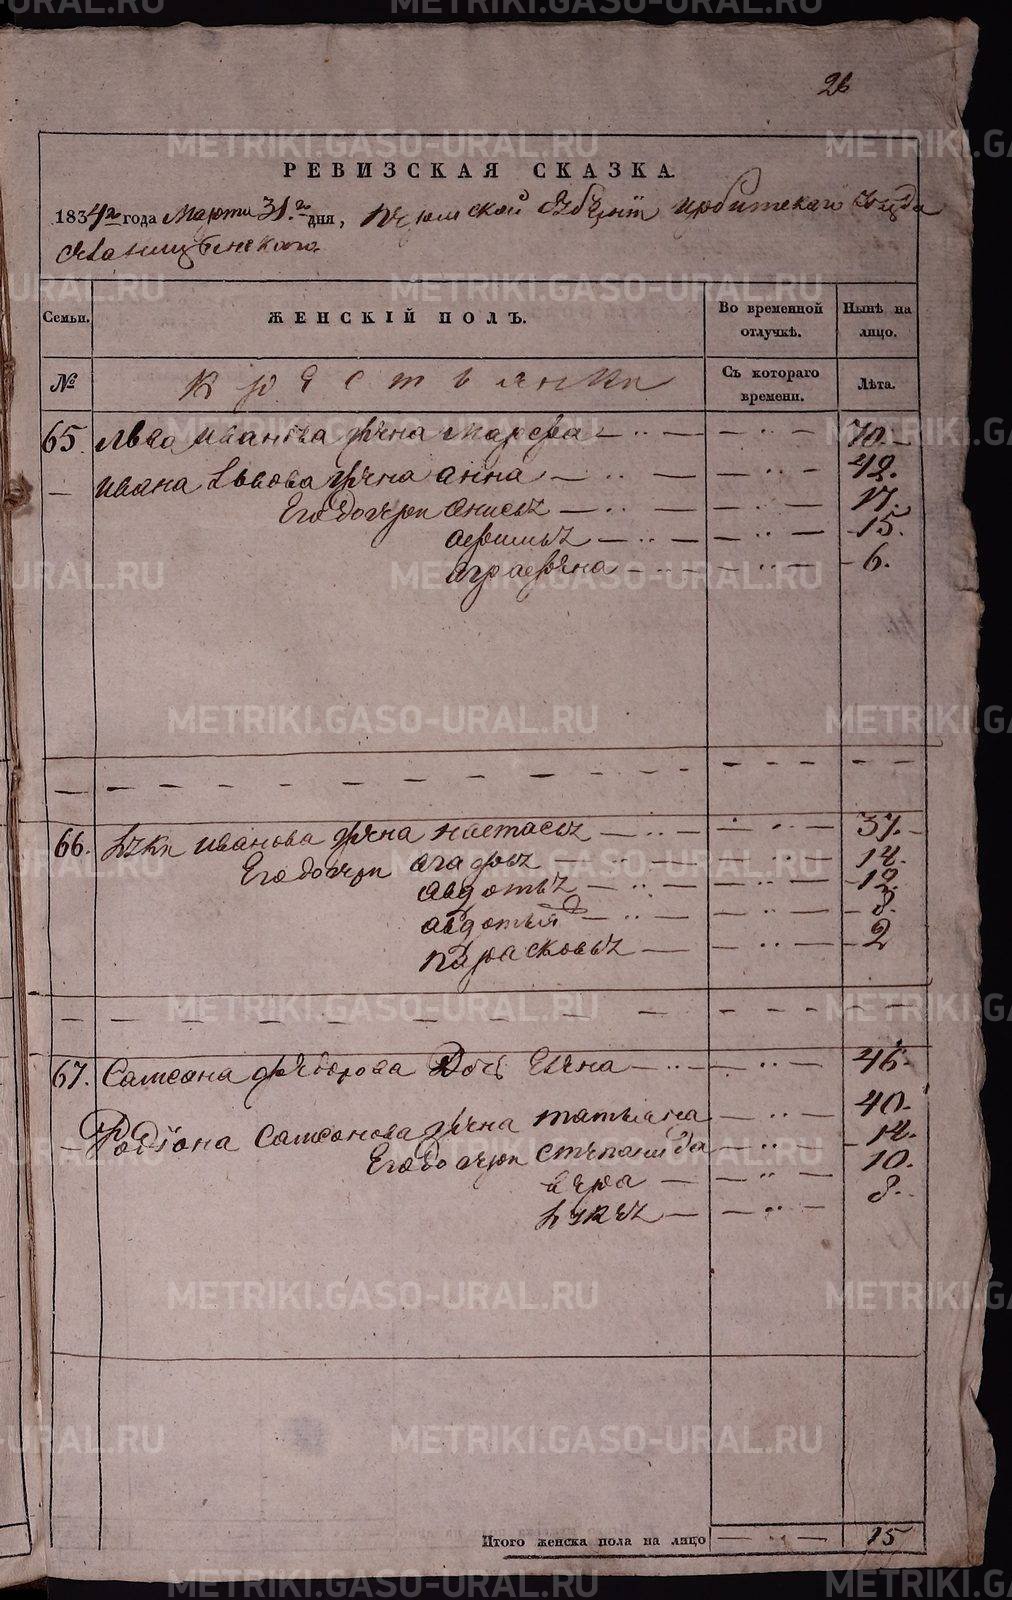 26
РЕВИЗСКАЯ СКАЗКА.
1834го года Марта 31го дня, Пермской Губернии Ирбитскаго Уезда
Семьи. ЖЕНСКІЙ ПОЛЪ. Во временной отлучкѣ. Нынѣ на лицо.
№ Крестьянки Съ котораго времени. Лѣта.
65. Лва Иванова жена Марфа — .. — — .. — 70.
— Ивана Львова жена анна — .. — — .. — 48.
Его дочери анисья — .. — — .. — 17.
афимья — .. — — .. — 15.
аграфена — .. — — .. — 6.
66. Луки Иванова жена настасья — .. — — .. — 37.
Его дочери агафья — .. — — .. — 18.
авдотья — .. — — .. — 12.
авдотья — .. — — .. — 8.
парасковья — — .. — 2
67. Самсона Федорова Дочь Елена — .. — — .. — 46.
— Родіона Самсонова жена татьяна — .. — 40.
Его дочери степанида — .. — 12.
вера — — .. — 10.
лукея — — .. — 8.
Итого женска пола на лицо — .. — 15
METRIKI.GASO-URAL.RU